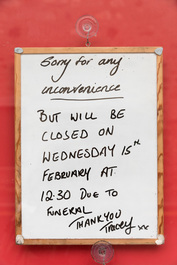 Sorry for any
inconvenience
BUT WILL BE
CLOSED ON
WEDNESDAY 15TH
FEBRUARY AT
12:30 DUE TO
FUNERAL
THANKYOU
Tracey xx